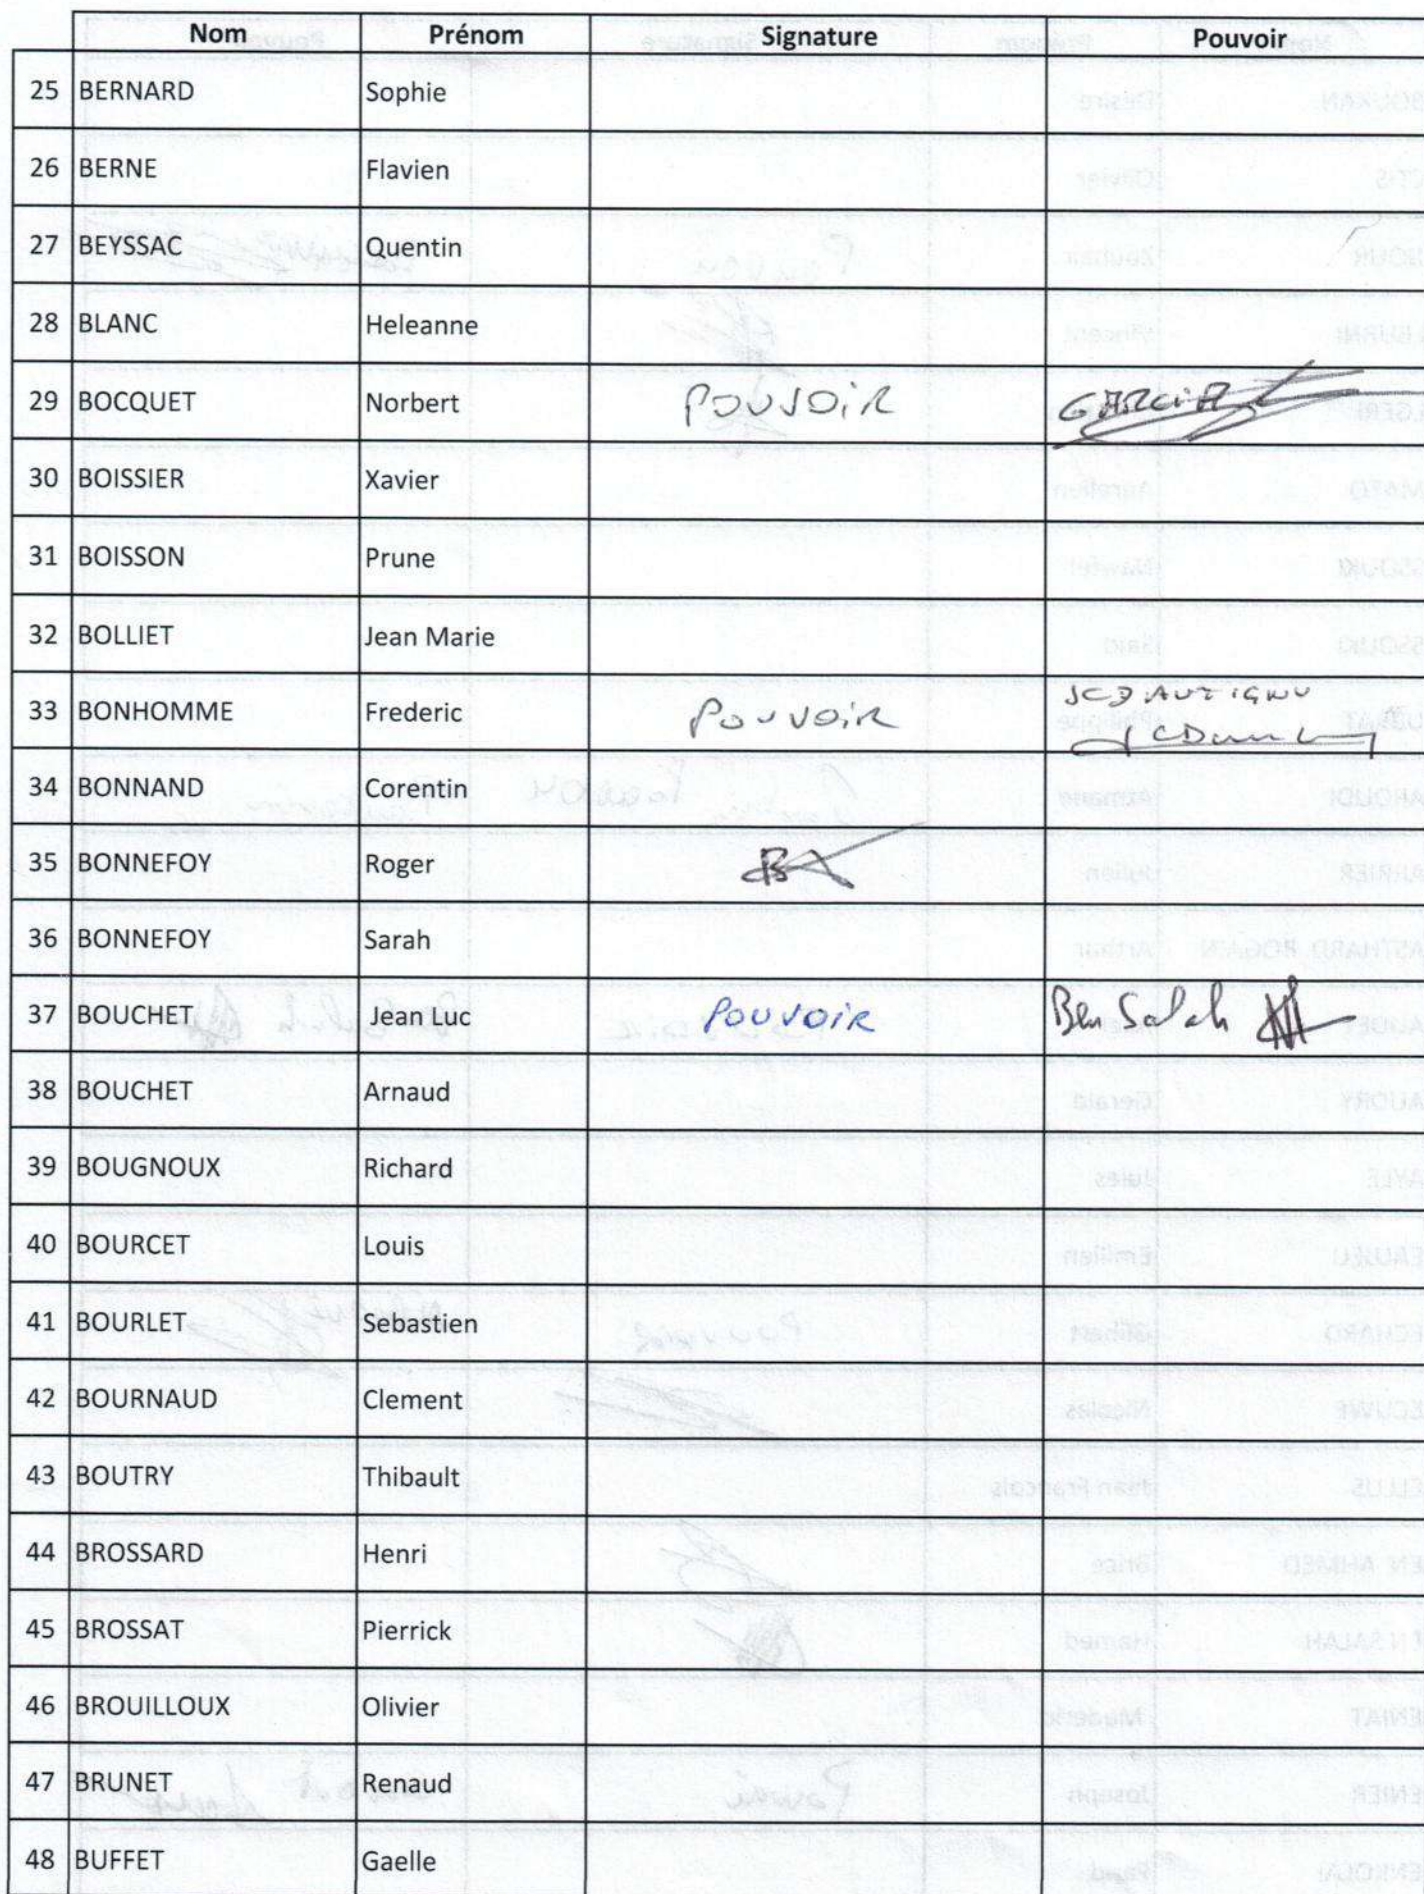 Nom Prénom Signature Pouvoir
25 BERNARD Sophie
26 BERNE Flavien
27 BEYSSAC Quentin
28 BLANC Heleanne
29 BOCQUET Norbert POUVOIR GARCIA
30 BOISSIER Xavier
31 BOISSON Prune
32 BOLLIET Jean Marie
33 BONHOMME Frederic POUVOIR JCD'AUTIGNY
34 BONNAND Corentin
35 BONNEFOY Roger
36 BONNEFOY Sarah
37 BOUCHET Jean Luc POUVOIR Ben Salah
38 BOUCHET Arnaud
39 BOUGNOUX Richard
40 BOURCET Louis
41 BOURLET Sebastien
42 BOURNAUD Clement
43 BOUTRY Thibault
44 BROSSARD Henri
45 BROSSAT Pierrick
46 BROUILLOUX Olivier
47 BRUNET Renaud
48 BUFFET Gaelle